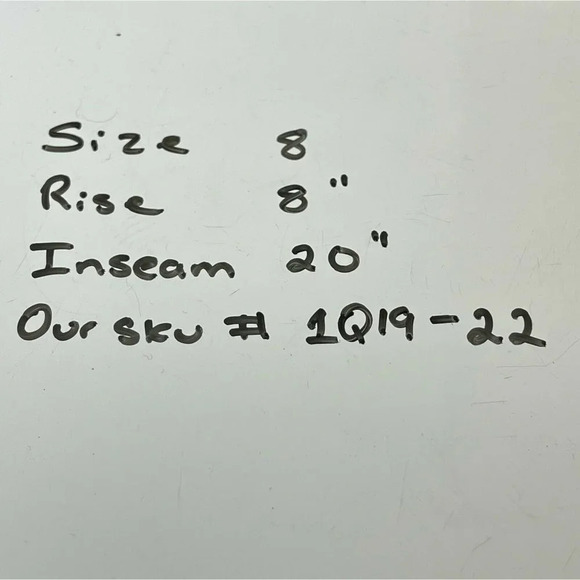 Size 8
Rise 8"
Inseam 20"
Our sku # 1Q19-22